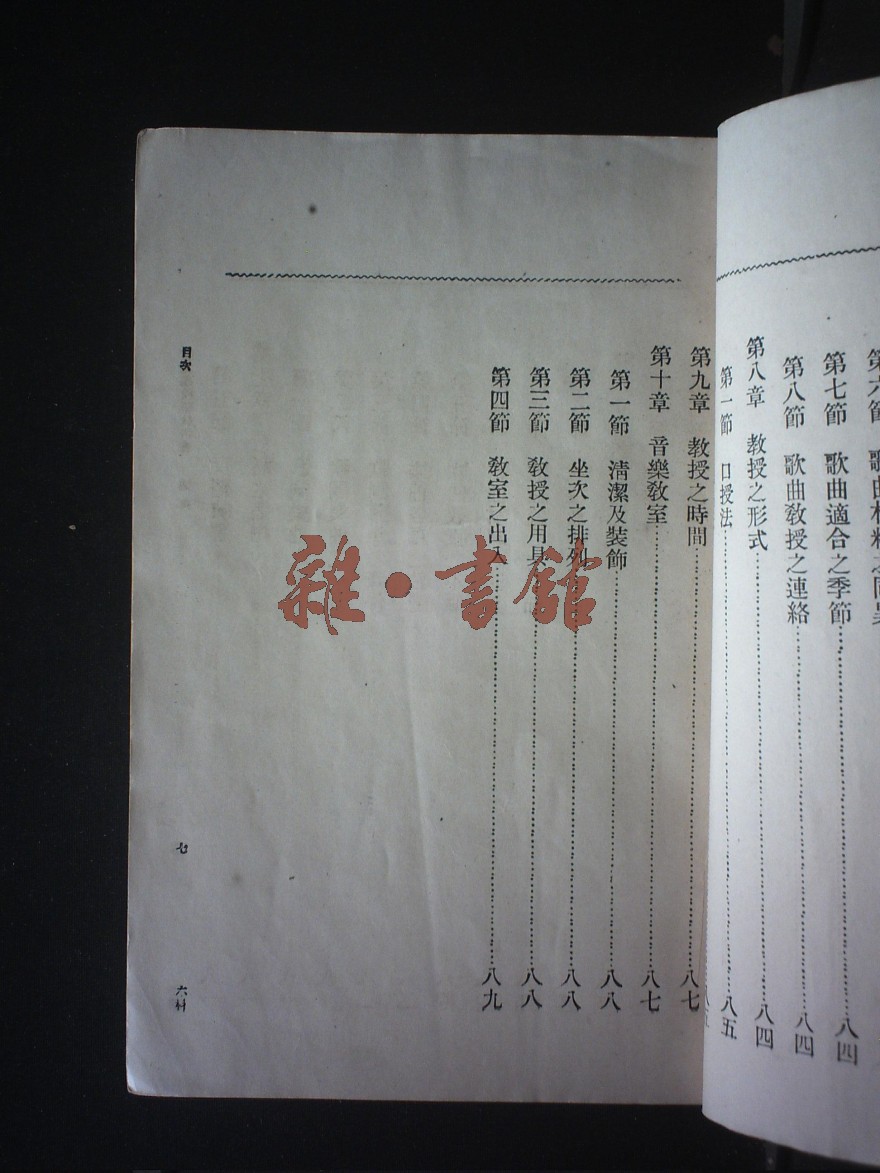 第七節　歌曲適合之季節……八四
第八節　歌曲教授之連絡……八四
第八章　教授之形式……八四
第一節　口授法……八五
第九章　教授之時間……八七
第十章　音樂敎室……八七
第一節　清潔及裝飾……八八
第二節　坐次之排列……八八
第三節　敎授之用具……八八
第四節　敎室之出入……八九
目次
七
雜·書館